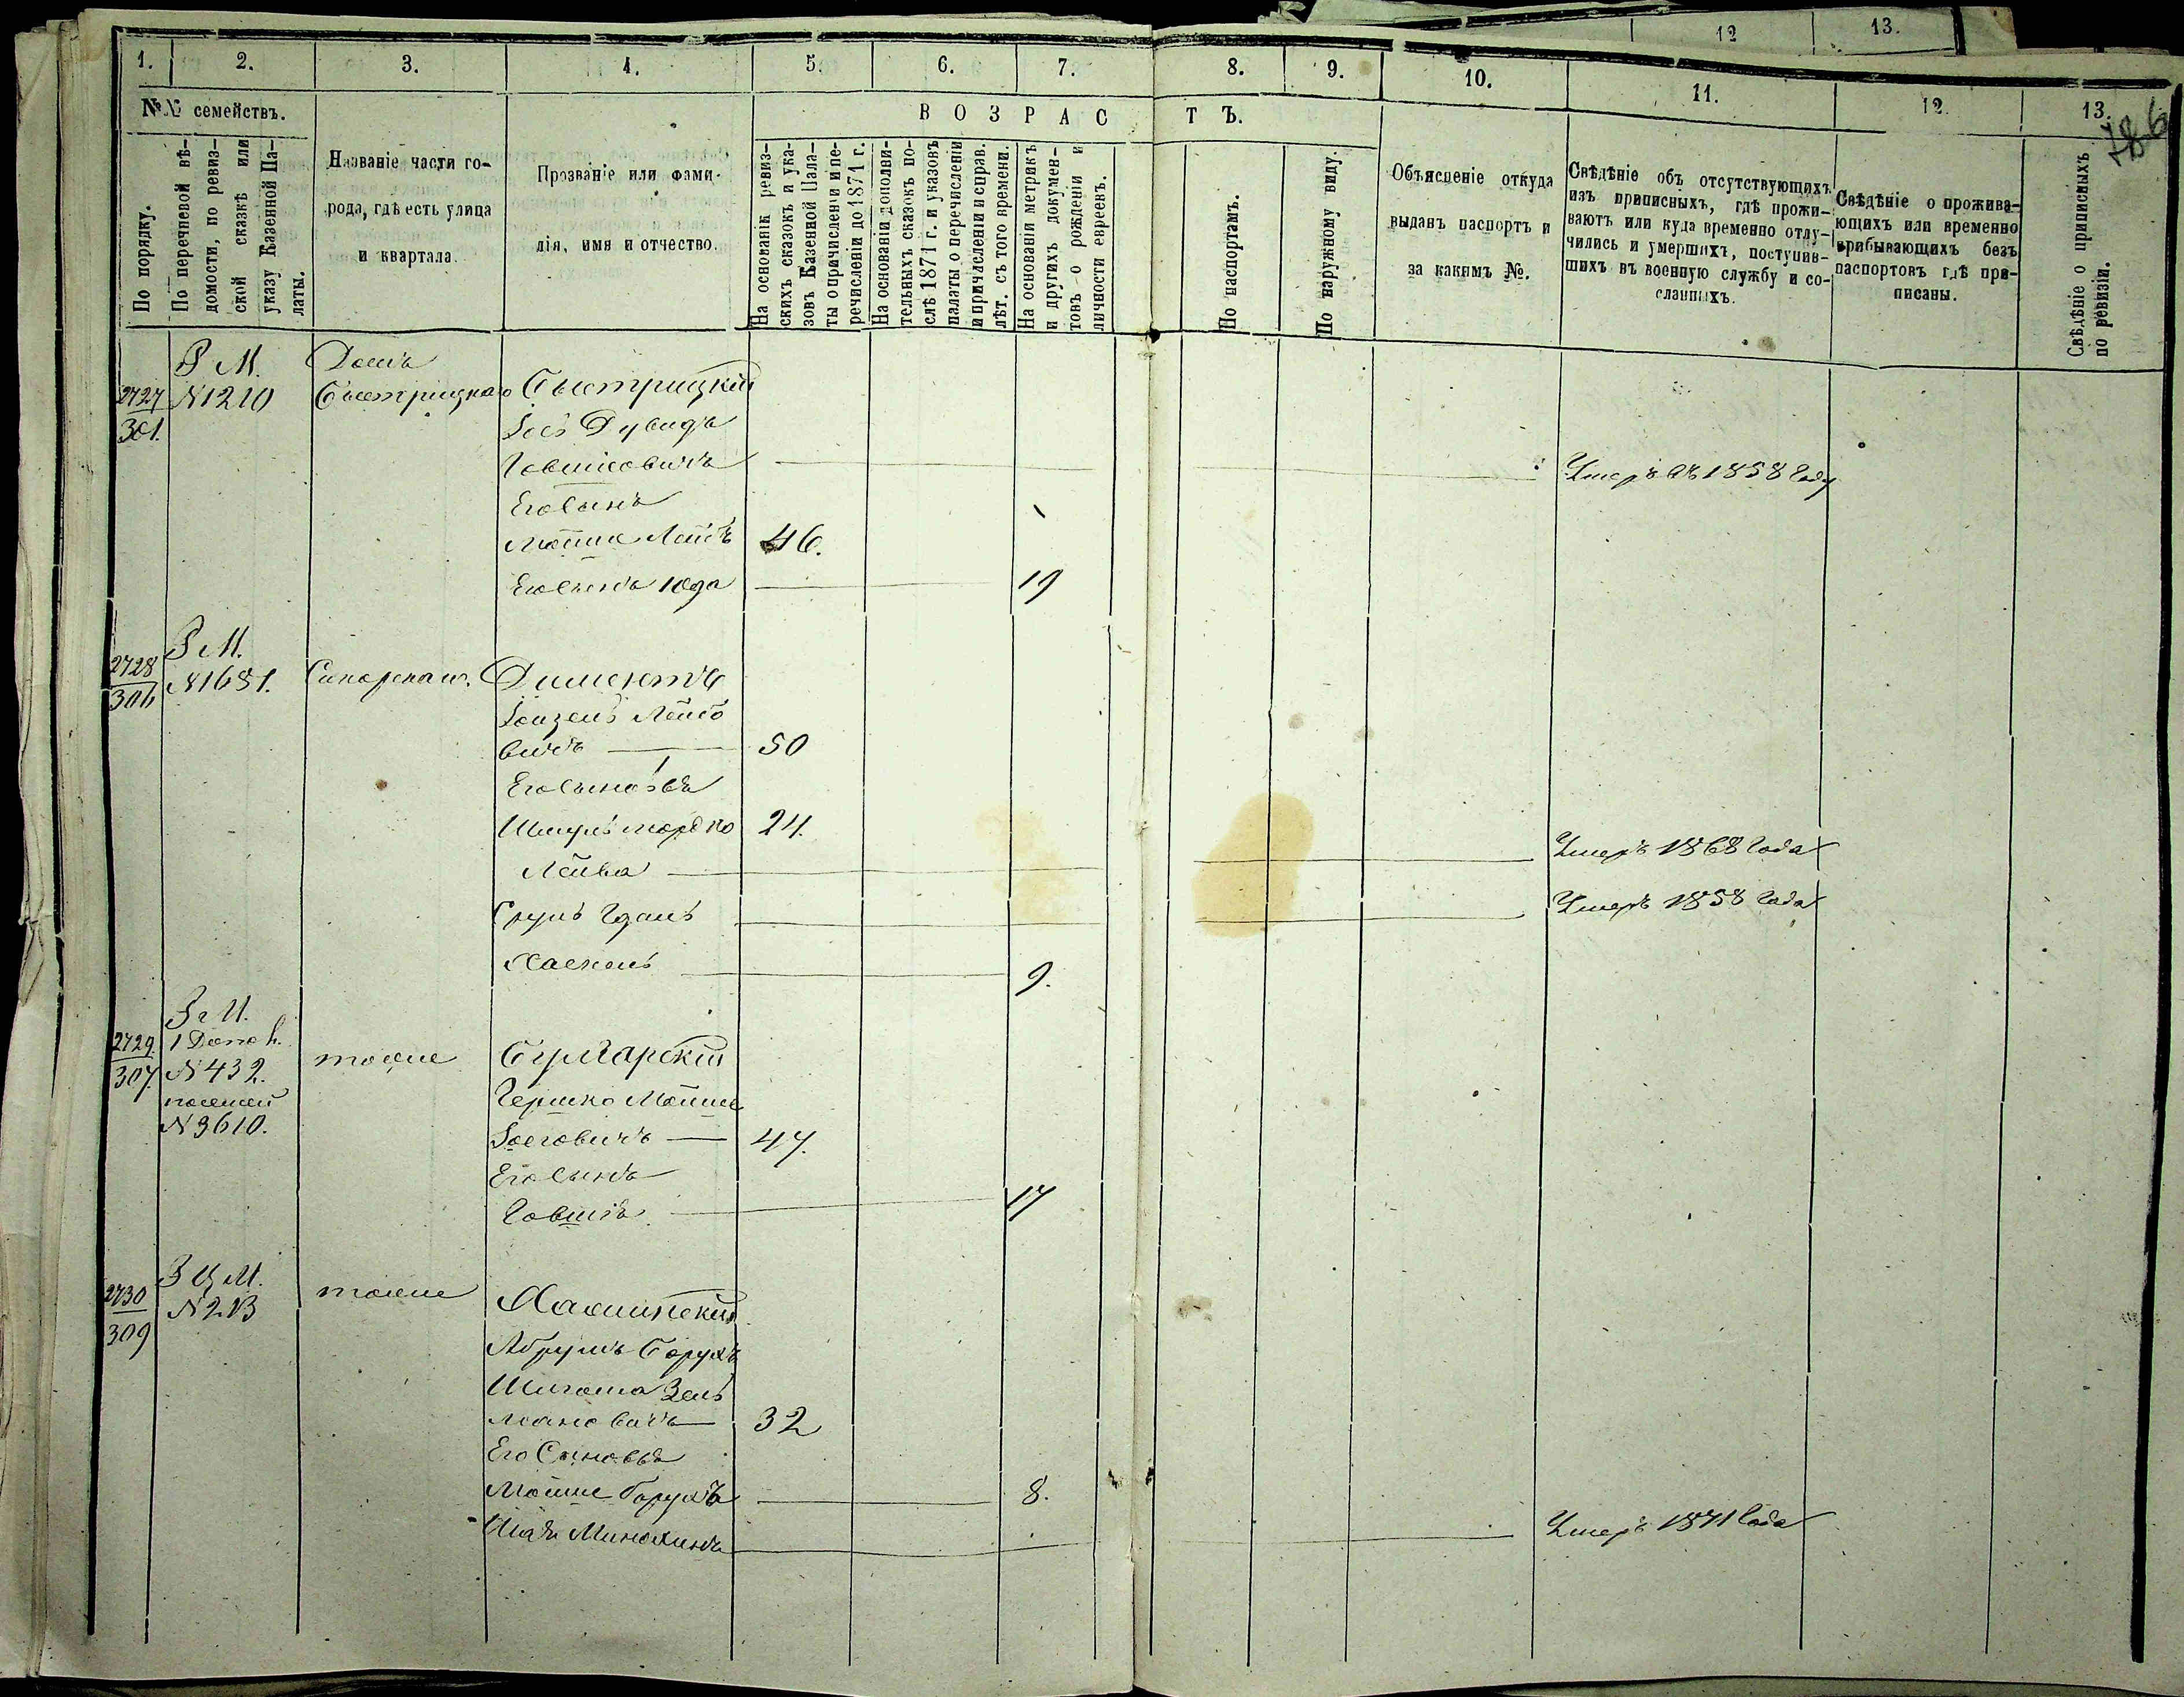 12 13.
1. 2. 3. 4. 5. 6. 7. 8. 9. 10. 11. 12. 13.
№№ семействъ.
По порядку.
По перечневой вѣ-
домости, по ревиз-
ской сказкѣ или
указу Казенной Па-
латы.
Названіе части го-
рода, гдѣ есть улица
и квартала.
Прозваніе или фами-
лія, имя и отчество.
ВОЗРАСТЪ.
На основаніи ревиз-
скихъ сказокъ и ука-
зовъ Казенной Пала-
ты о причисленіи и пе-
речисленіи до 1871 г.
На основаніи дополни-
тельныхъ сказокъ по-
слѣ 1871 г. и указовъ
палаты о перечисленіи
и причисленіи и справ.
лѣт. съ того времени.
На основаніи метрикъ
и другихъ докумен-
товъ о рожденіи и
личности евреевъ.
По паспортамъ.
По наружному виду.
Объясненіе откуда
выданъ паспортъ и
за какимъ №.
Свѣдѣніе объ отсутствующихъ
изъ приписныхъ, гдѣ прожи-
ваютъ или куда временно отлу-
чились и умершихъ, поступив-
шихъ въ военную службу и со-
сланныхъ.
Свѣдѣніе о прожива-
ющихъ или временно
прибывающихъ безъ
паспортовъ гдѣ при-
писаны.
Свѣдѣніе о приписныхъ
по ревизіи.
786
2727
301.
Р М.
N 1210
Домъ
Быстрицкаго
Быстрицкій
Іось Дувидъ
Говшіовичъ Умеръ въ 1858 году
Его сынъ
Мошко Лейбъ 46.
Его сынъ Юда 19
2728
306
Р М.
N 1681.
Диментъ
Іоизель Лейбо
вичъ 50
Его сыновья
Шмуль мордко 24.
Лейба Умеръ 1868 года
Сруль Ицань Умеръ 1858 года
Хаскель 9.
2729.
307.
N 432.
N 3610.
тоже
Булгарскій
Гершко Мошко
Іосговичъ 47.
Его сынъ
Говшія 17
2730
309
З Ц М.
N 213
тоже
Хасминскій
Абрумъ Борухъ
Шигома Зель
мановичъ 32
Его Сыновья
Мошко Борухъ 8.
Шая Минохинъ Умеръ 1871 года